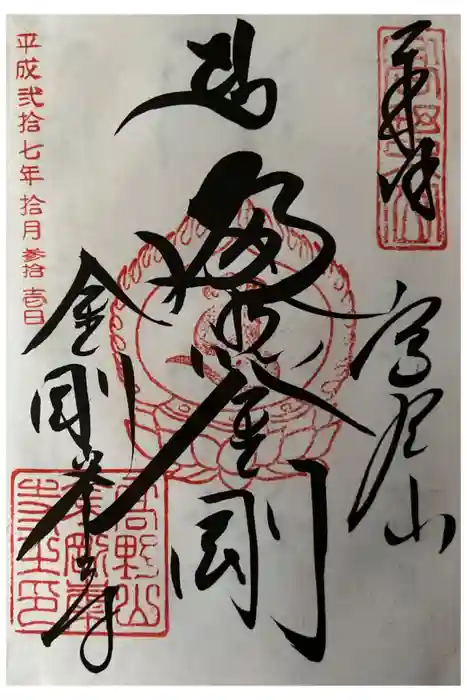 奉拝
高野山
遍照金剛
金剛峯寺
平成弐拾七年拾月参拾壱日
高野山
金剛峯
寺之印